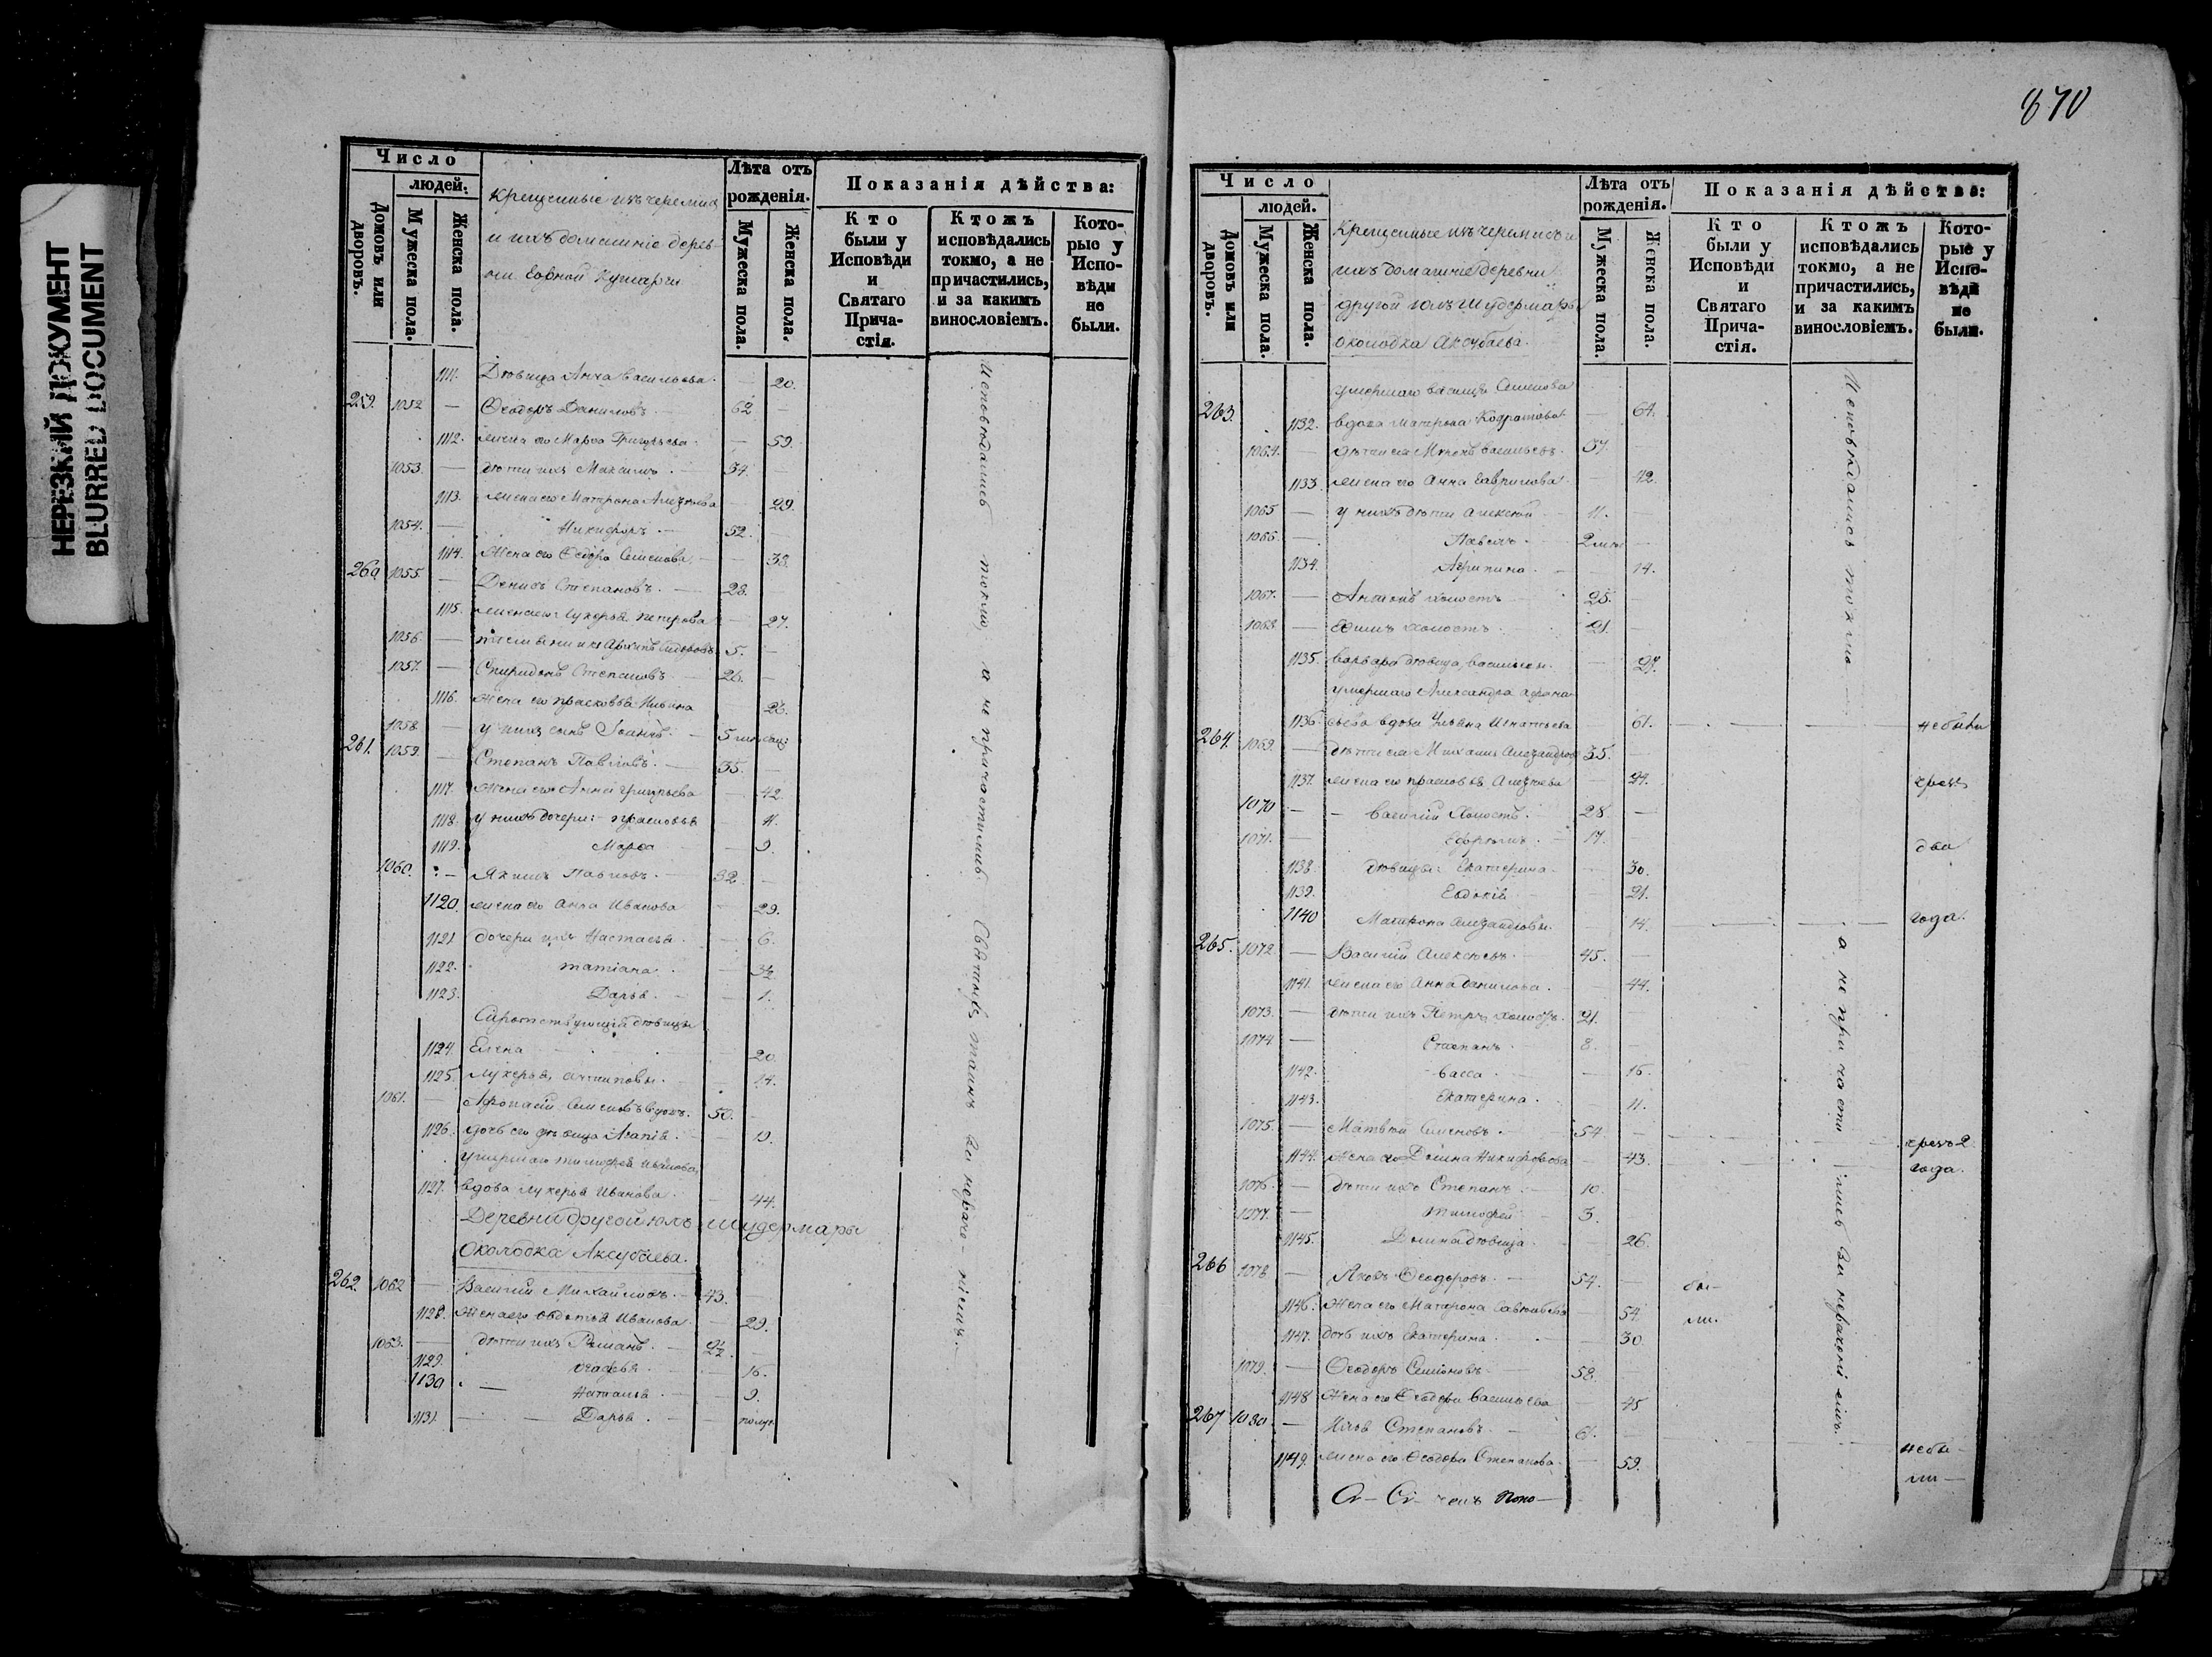 НЕРЕЗКИЙ ДОКУМЕНТ
BLURRED DOCUMENT
Число
людей.
Домовъ или дворовъ.
Мужеска пола.
Женска пола.
Крещенные изъ черемисъ
и ихъ домашніе дерев-
ни
Лѣта отъ рожденія.
Мужеска пола.
Женска пола.
Показанія дѣйства:
Кто были у Исповѣди и Святаго Прича-стія.
Ктожъ исповѣдались токмо, а не причастились, и за какимъ винословіемъ.
Кото-рые у Испо-вѣди не были.
1111. Дѣвица Анна Васильева. 20.
259. 1052 — Ѳеодоръ Даниловъ. — 62 —
1112. жена его Марѳа Григорьева. — 59.
1053. — дѣти ихъ Максимъ. — 34
1113. жена его Матрона — 29.
1054. — Никифоръ — 52. —
1114. Жена его Ѳедора Семенова. — 38.
260. 1055. — Денисъ Степановъ. — 28.
1115. жена его Лукерья Петрова — 27.
1056 — Архипъ 5. —
1057. — Спиридонъ Степановъ. 26. —
1116. Жена его Прасковья 26.
1058. — у нихъ сынъ Іоаннъ. — 5
261. 1059. — Степанъ Павловъ. — 35. —
1117. Жена его Анна Григорьева — 42.
1118. у нихъ дочери: Прасковья — 11.
1119. Марѳа — 9.
1060. — Якимъ Павловъ. — 32. —
1120. жена его Анна Иванова — 29.
1121. дочери ихъ Настасья. — 6.
1122. Татіана. — 3½
1123. Дарья. — 1.
дѣвицы
1124. Елена — 20.
1125. Лукерья, Антиповы. — 14.
1061. — Афонасій Семеновъ вдовъ. 50.
1126. дочь его дѣвица Агапія. — 19.
умершаго Тимофея Иванова
1127. вдова Лукерья Иванова. — 44.
Деревни другой юлъ Шудермары
Околодка Аксубаева.
262. 1062 — Василій Михайловъ. — 43. —
1128. Жена его Овдотья Иванова. — 29.
1063. — дѣти ихъ Романъ. — 2½ —
1129. Агафья. — 16.
1130. — Наталья. — 9.
1131. — Дарья. — полуг.
Исповѣдались токмо, а не причастились Святыхъ таинъ за нераче-ніемъ.
870
Число
людей.
Домовъ или дворовъ.
Мужеска пола.
Женска пола.
Крещенные изъ черемисъ и
ихъ домашніе деревни
другой юлъ Шудермары
околодка Аксубаева.
Лѣта отъ рожденія.
Мужеска пола.
Женска пола.
Показанія дѣйства:
Кто были у Исповѣди и Святаго Прича-стія.
Ктожъ исповѣдались токмо, а не причастились, и за какимъ винословіемъ.
Кото-рые у Испо-вѣди не были.
умершаго Семенова
263. 1132. вдова Матрона — 64.
1064. — дѣти ея Васильевъ. 37.
1133. жена его Анна Гаврилова — 42.
1065 — у нихъ дѣти Алексѣй — 11. —
1066. — Павелъ. — 2
1134. Агрипина. — 14.
1067. — Антонъ холостъ 25. —
1068 — Ефимъ холостъ. 21. —
1135. Варвара дѣвица, Васильевы. — 27.
умершаго Александра Афона-
1136. сьева вдова Ульяна Игнатьева — 61. не были
264. 1069. — дѣти ея Михаилъ Александровъ 35. —
1137. жена его Прасковья — 24. чрезъ
1070 — Василій холостъ. — 28 —
1071. — Ефремъ. — 17. два
1138. дѣвицы: Екатерина. — 30.
1139. Евдокія — 21.
1140 Матрона Александровы. — 14. года.
265. 1072. — Василій Алексѣевъ. 45. —
1141. жена его Анна Данилова. — 44.
1073. — дѣти ихъ Петръ, холостъ. 21.
1074. — Степанъ. 8. —
1142. Васса. — 16.
1143. Екатерина. — 11.
1075. — Матвѣй Семеновъ. 54 — чрезъ 2
1144. Жена его Домна Никифорова — 43. года.
1076. — дѣти ихъ Степанъ. — 10.
1077. — Тимофей 3.
1145. Домна дѣвица. — 26.
266 1078 — Яковъ Ѳеодоровъ. — 54. — бы-
1146. Жена его Матрона — 54 ли.
1147. дочь ихъ Екатерина. — 30
1079. — Ѳеодоръ Семеновъ. 58.
1148 Жена его Ѳеодора Васильева 45
267 1080. — Илья Степановъ. — 61. — не бы-
1149. жена его Ѳеодора Степанова. — 59. ли —
Исповѣдались токмо — а не причасти лись за нераченіемъ.